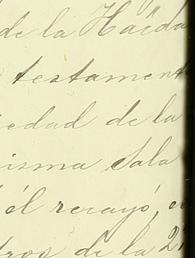 de la Hacda
testament
edad de la
isma Sala
él recayó, e
tros de la 2